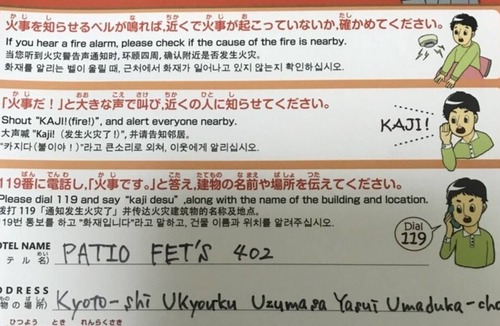 火事を知らせるベルが鳴れば,近くで火事が起こっていないか,確かめてください。
If you hear a fire alarm, please check if the cause of the fire is nearby.
当您听到火灾警告声通知时，环顾四周，确认附近是否发生火灾。
화재를 알리는 벨이 울릴 때, 근처에서 화재가 일어나고 있지 않는지 확인하십시오.
「火事だ!」と大きな声で叫び,近くの人に知らせてください。
Shout "KAJI!(fire!)", and alert everyone nearby.
大声喊 "Kaji!（发生火灾了!)", 并请告知邻居。
"카지다(불이야!)" 라고 큰소리로 외쳐, 이웃에게 알리십시오.
KAJI!
119番に電話し,「火事です。」と答え,建物の名前や場所を伝えてください。
Please dial 119 and say "kaji desu" ,along with the name of the building and location.
拨打 119「通知发生火灾了」并传达火灾建筑物的名称及地点。
119번 통보를 하고 "화재입니다"라고 말하고, 건물 이름과 위치를 알려주십시오.
Dial
119
OTEL NAME
テル名)
PATIO FET'S 402
DDRESS
物の場所)
Kyoto-shi Ukyouku Uzumasa Yasui Umaduka-cho
つうよう とき れんらくさき